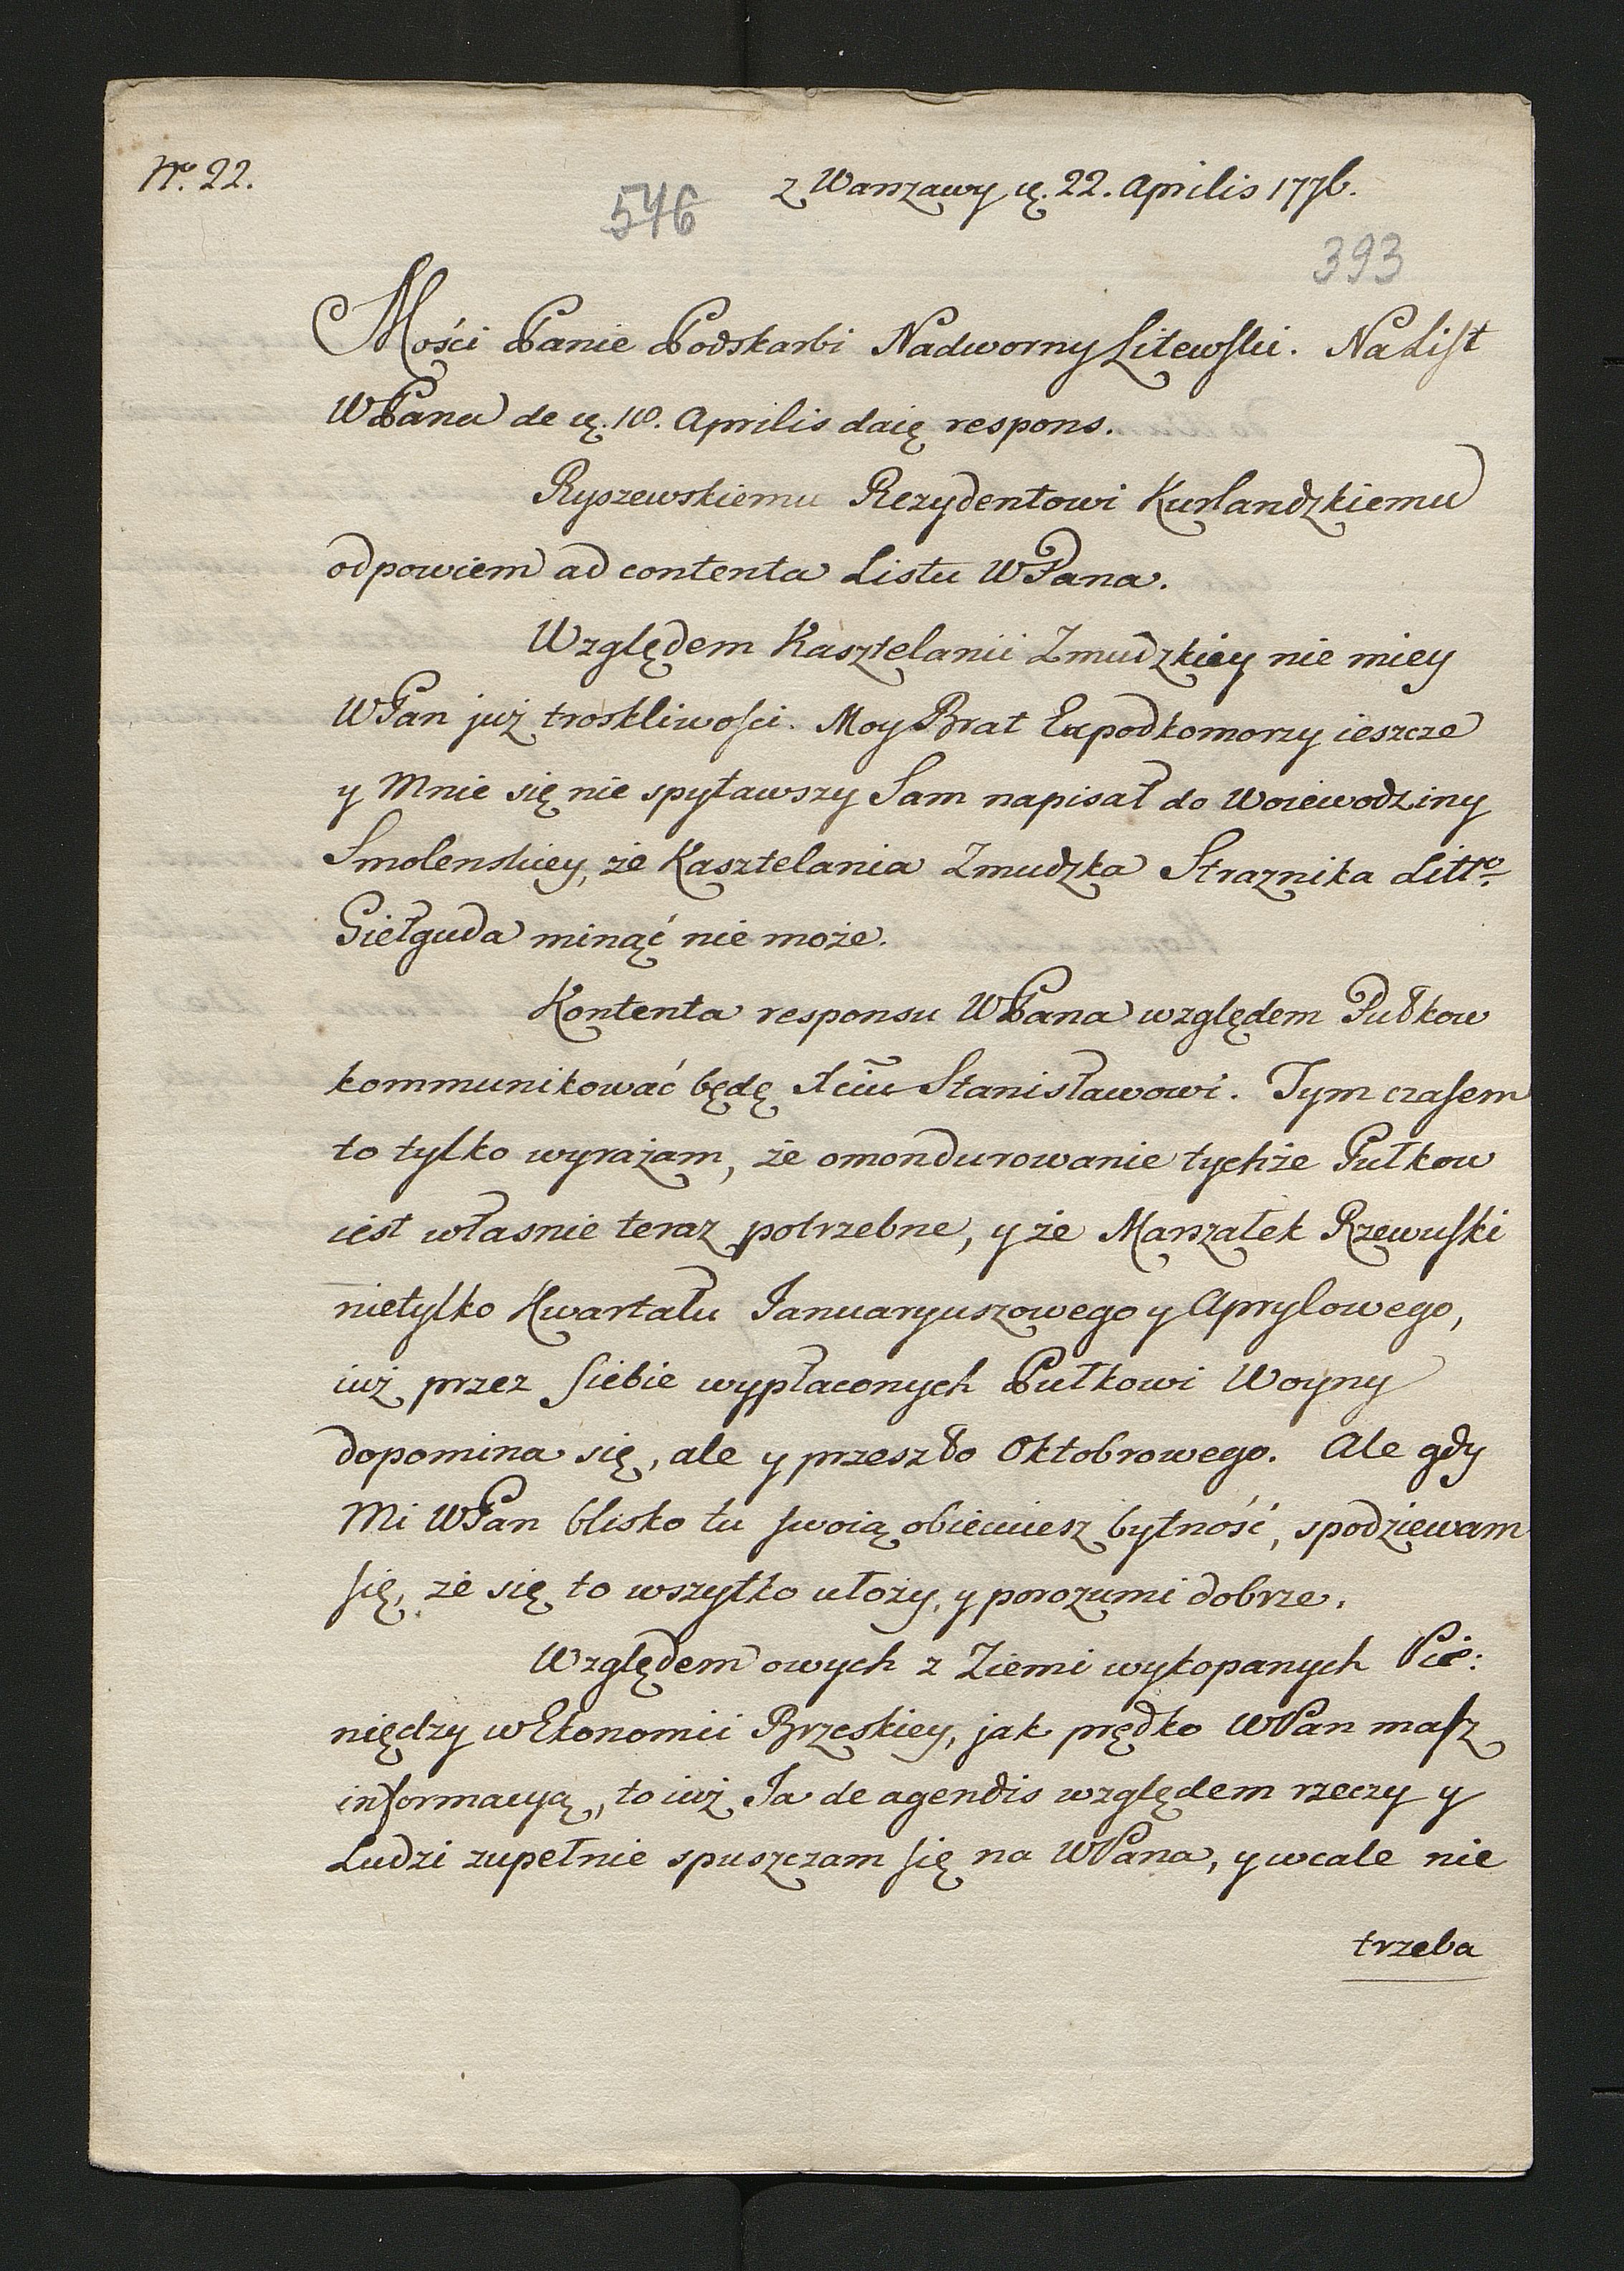 Nro. 22.
z Warszawy d. 22. Aprilis 1776.
546
393
Mości Panie Podskarbi Nadworny Litewski. Na List
WPana de d. 18. Aprilis daię respons.
Ryszewskiemu Rezydentowi Kurlandzkiemu
odpowiem ad contenta Listu WPana.
Względem Kasztelanii Zmudzkiey nie miey
WPan już troskliwości. Moy Brat Expodkomorzy ieszcze
y Mnie się nie spytawszy Sam napisał do Woiewodziny
Smolenskiey, że Kasztelania Zmudzka Straznika Litt⁰.
Giełguda minąć nie może.
Kontenta responsu WPana względem Pułkow
kommunikować będę Xciu Stanisławowi. Tym czasem
to tylko wyrażam, że omondurowanie tychże Pułkow
iest własnie teraz potrzebne, y że Marszałek Rzewuski
nietylko Kwartału Januaryuszowego y Aprylowego,
iuż przez siebie wypłaconych Pułkowi Woyny
dopomina się, ale y przeszło Oktobrowego. Ale gdy
Mi WPan blisko tu swoią obiecuiesz bytność, spodziewam
się, że się to wszytko ułoży, y porozumi dobrze.
Względem owych z Ziemi wykopanych Pie:
niędzy w Ekonomii Brzeskiey, jak prędko WPan masz
informacyą, to iuż Ja de agendis względem rzeczy y
Ludzi zupełnie spuszczam się na WPana, y wcale nie
trzeba